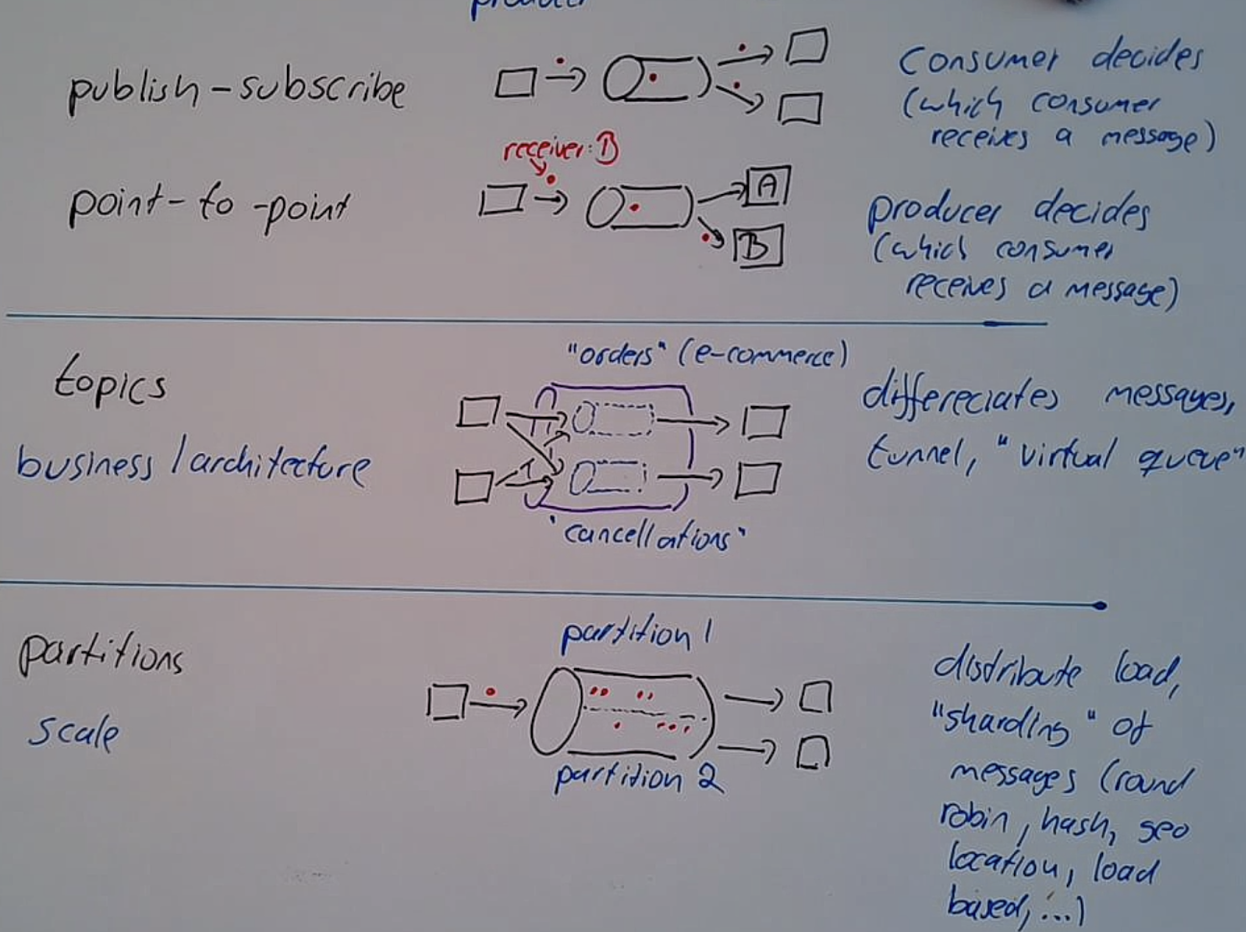 producer
publish-subscribe
Consumer decides
(which consumer
receives a message)
receiver: B
point-to-point
A
B
producer decides
(which consumer
receives a message)
"orders" (e-commerce)
topics
business/architecture
differeciates messages,
tunnel, "virtual queue"
"cancellations"
partitions
scale
partition 1
partition 2
distribute load,
"sharding" of
messages (round
robin, hash, geo
location, load
based, ...)